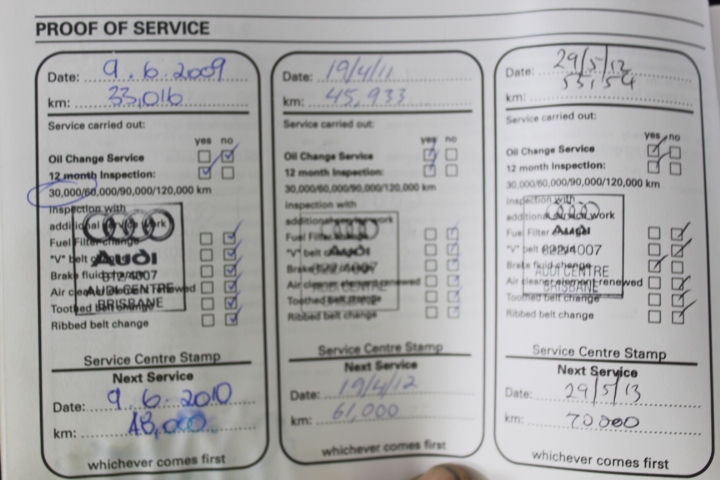 PROOF OF SERVICE
Date: 9.6.2009
km: 33,016
Service carried out:
yes no
Oil Change Service
12 month Inspection:
30,000/60,000/90,000/120,000 km
inspection with
additional service work
Fuel Filter change
"V" belt change
Brake fluid change
Air cleaner element renewed
Toothed belt change
Ribbed belt change
Audi
B124007
AUDI CENTRE
BRISBANE
Service Centre Stamp
Next Service
Date: 9.6.2010
km: 48,000
whichever comes first
Date: 19/4/11
km: 45,933
Service carried out:
yes no
Oil Change Service
12 month Inspection:
30,000/60,000/90,000/120,000 km
inspection with
additional service work
Fuel Filter change
"V" belt change
Brake fluid change
Air cleaner element renewed
Toothed belt change
Ribbed belt change
Audi
Service Centre Stamp
Next Service
Date: 19/4/12
km: 61,000
whichever comes first
Date: 29/5/12
km: 55,154
Service carried out:
yes no
Oil Change Service
12 month Inspection:
30,000/60,000/90,000/120,000 km
inspection with
additional service work
Fuel Filter change
"V" belt change
Brake fluid change
Air cleaner element renewed
Toothed belt change
Ribbed belt change
Audi
AUDI CENTRE
BRISBANE
Service Centre Stamp
Next Service
Date: 29/5/13
km: 70000
whichever comes first